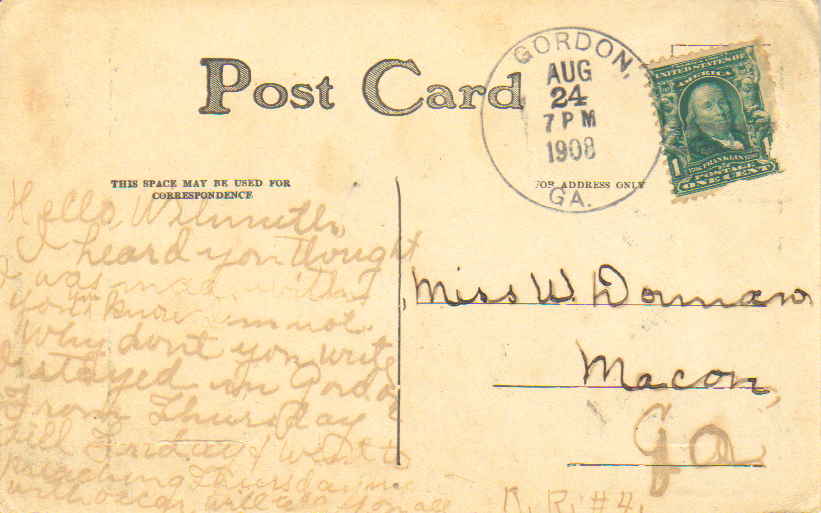 Post Card
GORDON,
AUG
24
7 PM
1908
GA.
UNITED STATES OF
AMERICA
1 FRANKLIN 1
POSTAGE
ONE CENT
THIS SPACE MAY BE USED FOR
CORRESPONDENCE
FOR ADDRESS ONLY
Hello
I heard you thought
I was mad with
you know im not.
Why dont you write
I stayed in Gordon
From Thursday
till Friday & went to
preaching Thursday
will you all
Miss W. Dorman
Macon,
Ga
R. R. #4.